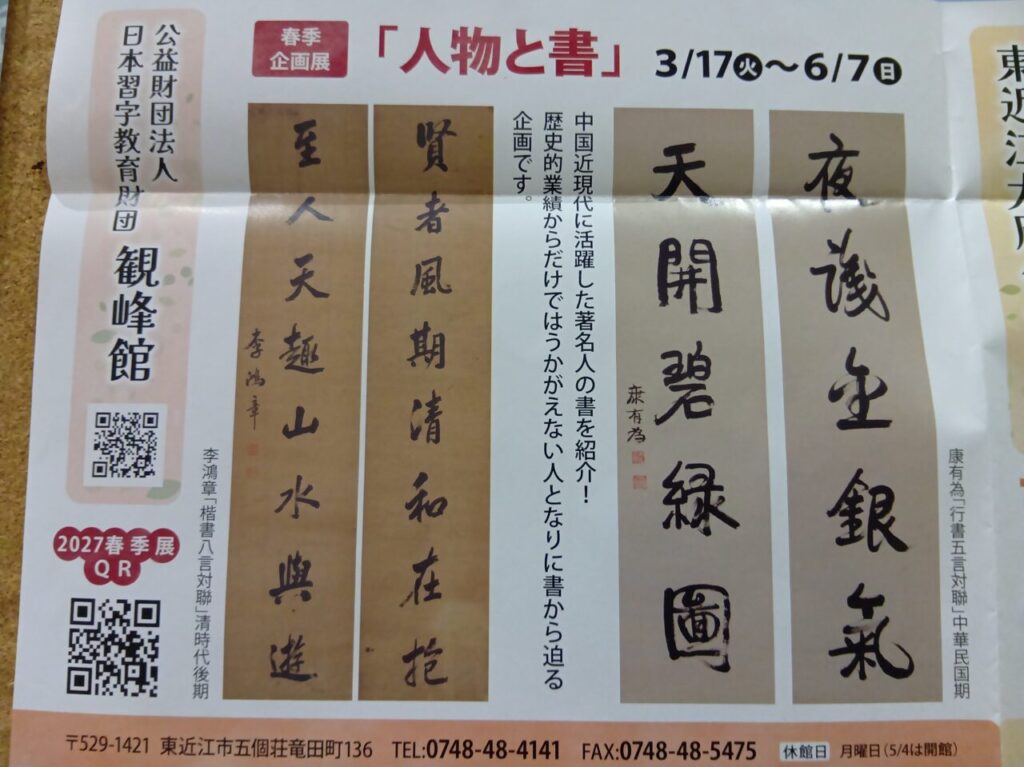 公益財団法人
日本習字教育財団
観峰館
2027春季展
QR
春季
企画展
「人物と書」
3/17火～6/7日
夜識金銀氣
天開碧緑圖
康有為
康有為「行書五言対聯」中華民国期
中国近現代に活躍した著名人の書を紹介！
歴史的業績からだけではうかがえない人となりに書から迫る
企画です。
賢者風期清和在抱
至人天趣山水與遊
李鴻章
李鴻章「楷書八言対聯」清時代後期
〒529-1421 東近江市五個荘竜田町136 TEL:0748-48-4141 FAX:0748-48-5475 休館日 月曜日（5/4は開館）
東近江大凧